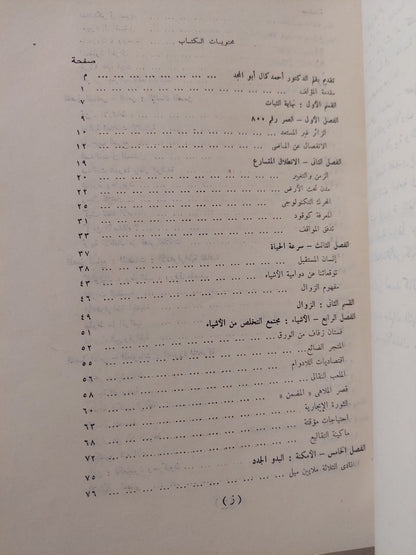 محتويات الكتاب
صفحة
تقديم بقلم الدكتور أحمد كمال أبو المجد ... ... ... ... ... ... م
مقدمة المؤلف ... ... ... ... ... ... ... ... ... ١
القسم الأول - نهاية الثبات ٧
الفصل الأول - العمر رقم ٨٠٠ ٩
الزائر غير المستعد ... ... ... ... ... ... ... ... ١٠
الانفصال عن الماضى ... ... ... ... ... ... ... ١٢
الفصل الثانى - الانطلاق المتسارع ١٩
الزمن والتغيير ... ... ... ... ... ... ... ... ٢٠
مدن تحت الأرض ... ... ... ... ... ... ... ... ٢٢
المحرك التكنولوجى ... ... ... ... ... ... ... ٢٥
المعرفة كوقود ... ... ... ... ... ... ... ... ٣١
تدفق المواقف ... ... ... ... ... ... ... ... ٣٣
الفصل الثالث - سرعة الحياة ٣٧
إنسان المستقبل ... ... ... ... ... ... ... ... ٣٨
توقعاتنا عن دوامية الأشياء ... ... ... ... ... ... ٤٣
مفهوم الزوال ... ... ... ... ... ... ... ... ٤٦
القسم الثانى : الزوال ٤٩
الفصل الرابع - الأشياء : مجتمع التخلص من الأشياء ٥١
فستان زفاف من الورق ... ... ... ... ... ... ... ٥٢
المتجر الضائع ... ... ... ... ... ... ... ... ٥٥
اقتصاديات اللادوام ... ... ... ... ... ... ... ٥٦
الملعب النقالى ... ... ... ... ... ... ... ... ٥٨
قصر الملاهى « المضمن » ... ... ... ... ... ... ٦٠
الثورة الإيجارية ... ... ... ... ... ... ... ... ٦٣
احتياجات مؤقتة ... ... ... ... ... ... ... ... ٦٨
ماكينة التقاليع ... ... ... ... ... ... ... ... ٧٢
الفصل الخامس - الأمكنة : البدو الجدد ٧٥
نادى الثلاثة ملايين ميل ... ... ... ... ... ... ٧٦
( ز )